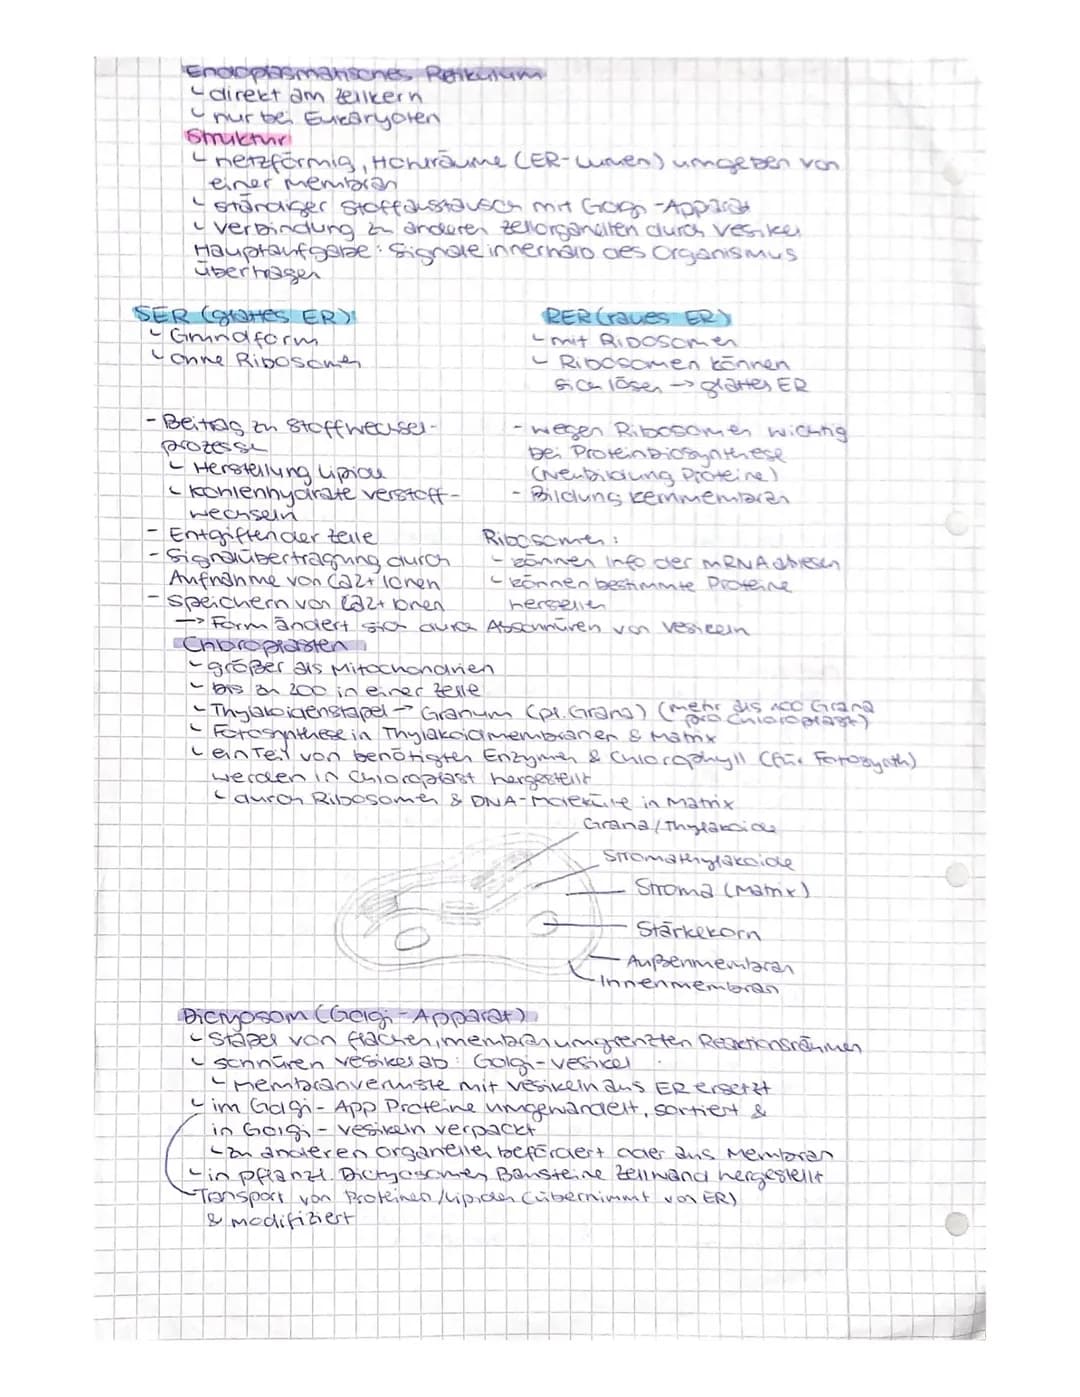 Endoplasmatisches Retikulum
↳ direkt am Zellkern
↳ nur bei Eukaryoten
Struktur
↳ netzförmig, Hohlräume (ER-Lumen) umgeben von
einer Membran
↳ ständiger Stoffaustausch mit Golgi-Apparat
↳ Verbindung zu anderen Zellorganellen durch Vesikel
Hauptaufgabe: Signale innerhalb des Organismus
übertragen
SER (glattes ER)
↳ Grundform
↳ ohne Ribosomen
- Beitrag zu Stoffwechsel-
prozesse
↳ Herstellung Lipide
↳ Kohlenhydrate verstoff-
wechseln
- Entgiften der Zelle
- Signalübertragung durch
Aufnahme von Ca2+ Ionen
- Speichern von Ca2+ Ionen
→ Form ändert sich durch Abschnüren von Vesikeln
RER (raues ER)
↳ mit Ribosomen
↳ Ribosomen können
sich lösen → glattes ER
- wegen Ribosomen wichtig
bei Proteinbiosynthese
(Neubildung Proteine)
- Bildung Kernmembran
Ribosomen:
↳ können Info der mRNA ablesen
↳ können bestimmte Proteine
herstellen
Chloroplasten
↳ größer als Mitochondrien
↳ bis zu 200 in einer Zelle
↳ Thylakoidenstapel → Granum (pl. Grana) (mehr als 100 Grana
pro Chloroplast)
↳ Fotosynthese in Thylakoidmembranen & Matrix
↳ ein Teil von benötigten Enzymen & Chlorophyll (für Fotosynth)
werden in Chloroplast hergestellt
↳ durch Ribosomen & DNA-Moleküle in Matrix
Grana/Thylakoide
Stromathylakoide
Stroma (Matrix)
Stärkekorn
Außenmembran
Innenmembran
Dictyosom (Golgi-Apparat)
↳ Stapel von flachen, membranumgrenzten Reaktionsräumen
↳ schnüren Vesikel ab: Golgi-Vesikel
↳ Membranverluste mit Vesikeln aus ER ersetzt
↳ im Golgi-App Proteine umgewandelt, sortiert &
in Golgi-Vesikeln verpackt
↳ zu anderen Organellen befördert oder ans Membran
↳ in pflanzl. Dictyosomen Bausteine Zellwand hergestellt
Transport von Proteinen/Lipiden (übernimmt von ER)
& modifiziert